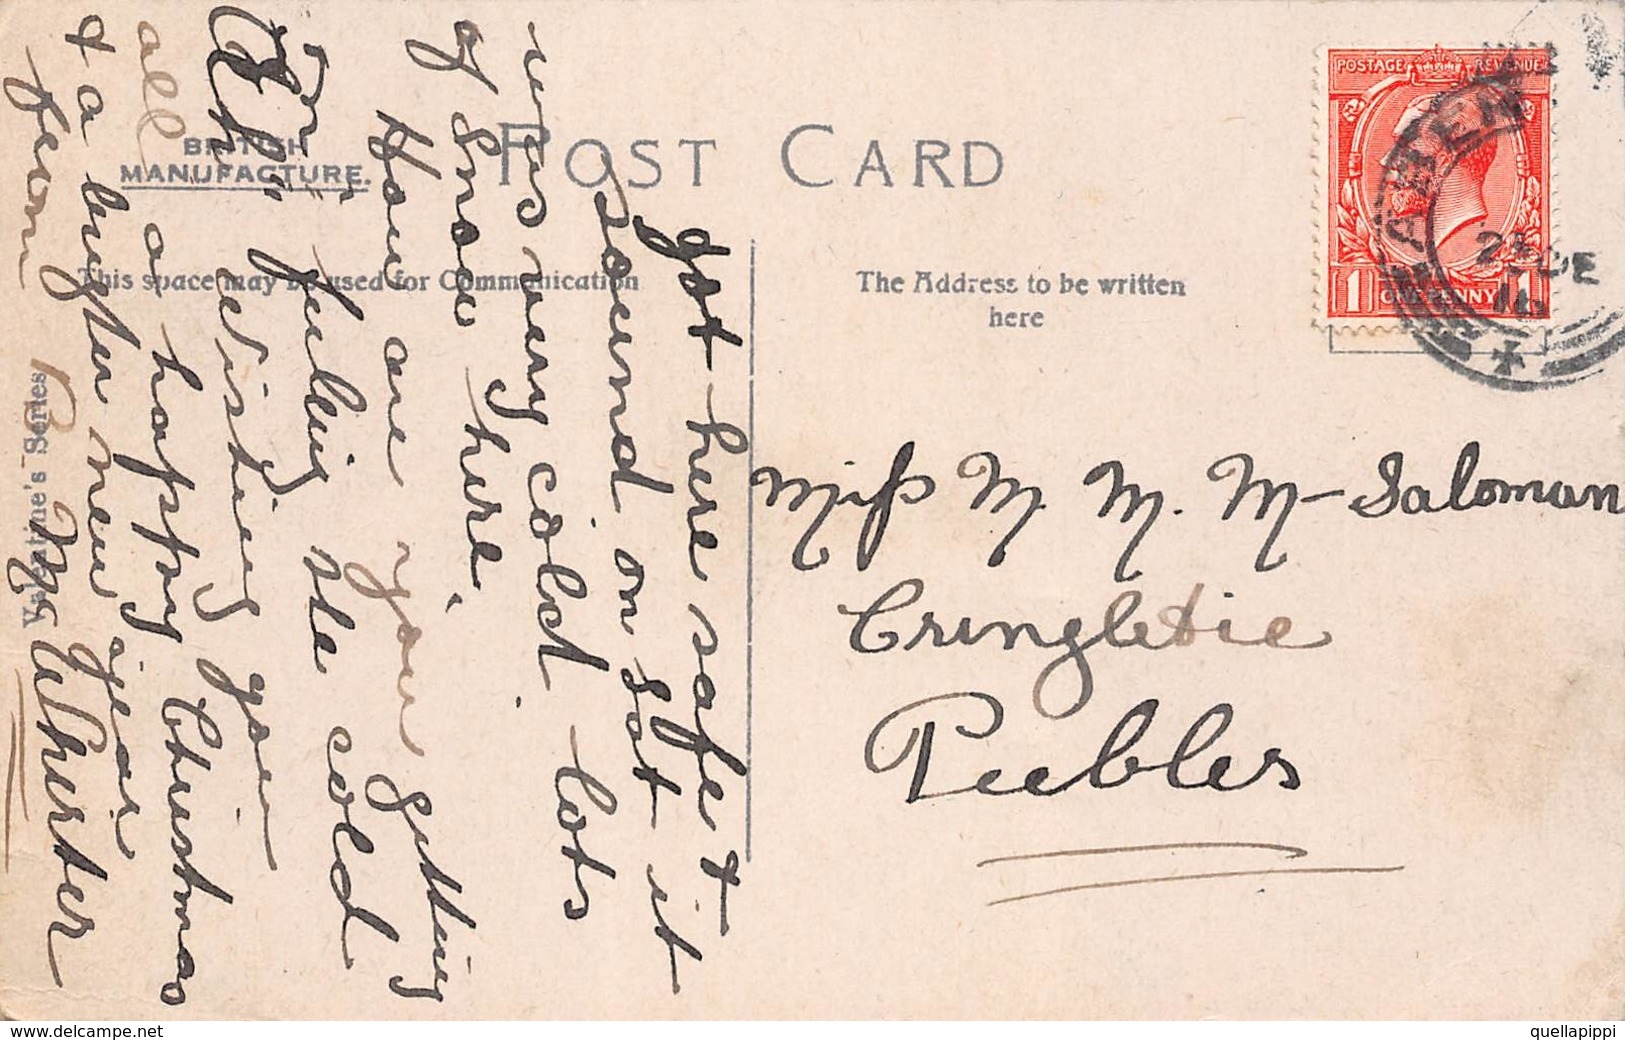 BRITISH
MANUFACTURE.
POST CARD
This space may be used for Communication
The Address to be written
here
Valentine's Series
POSTAGE REVENUE
1 ONE PENNY 1
DE
16
got here safe +
sound on sat it
was very cold lots
of Snow here.
How are you getting
on feeling the cold
wishing you
all a happy Christmas
+ a brighter new year
from
Mc Wherter
Miss M. M. M- Saloman
Cringletie
Peebles
www.delcampe.net
quellapippi